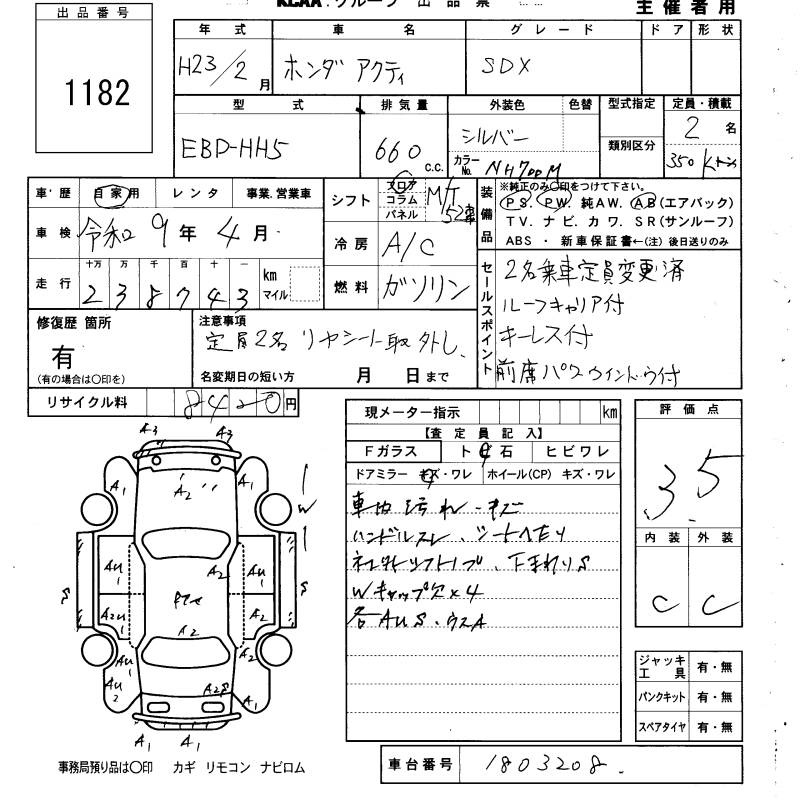 KCAA グループ 出品票 主催者用
出品番号
1182
年式 車名 グレード ドア 形状
H23/2月 ホンダ アクティ SDX
型式 排気量 外装色 色替 型式指定 定員・積載
EBD-HH5 660 c.c. シルバー 類別区分 2名
カラーNo. NH700M 350
車・歴 自家用 レンタ 事業.営業車
シフト フロア コラム パネル M/T 5速
装備品 ※純正のみ○印をつけて下さい。
PS. PW. 純AW. AB(エアバック)
TV. ナビ. カワ. SR(サンルーフ)
ABS ・ 新車保証書←(注)後日送りのみ
車検 令和9年4月
冷房 A/C
走行 十万 万 千 百 十 一 km マイル
238743
燃料 ガソリン
セールスポイント
2名乗車定員変更済
ルーフキャリア付
キーレス付
前席パワーウインドウ付
修復歴 箇所
有
(有の場合は○印を)
注意事項
定員2名 リヤシート取外し.
名変期日の短い方 月 日まで
リサイクル料 8420円
現メーター指示 km
【査定員記入】
Fガラス ト石 ヒビワレ
ドアミラー キズ・ワレ ホイール(CP) キズ・ワレ
車内汚れ・キズ
ハンドルスレ、シートへたり
下まわりS
Wキャップ欠×4
各AUS・ウスA
評価点
3.5
内装 外装
C C
A3 A3
A1 A2 A1
W
AU1 A2 AU1
S S
A2U1 A2
A2
AU1 A2
AU2 A2S
A1 A1 A1
ジャッキ工具 有・無
パンクキット 有・無
スペアタイヤ 有・無
事務局預り品は○印 カギ リモコン ナビロム
車台番号 1803208.